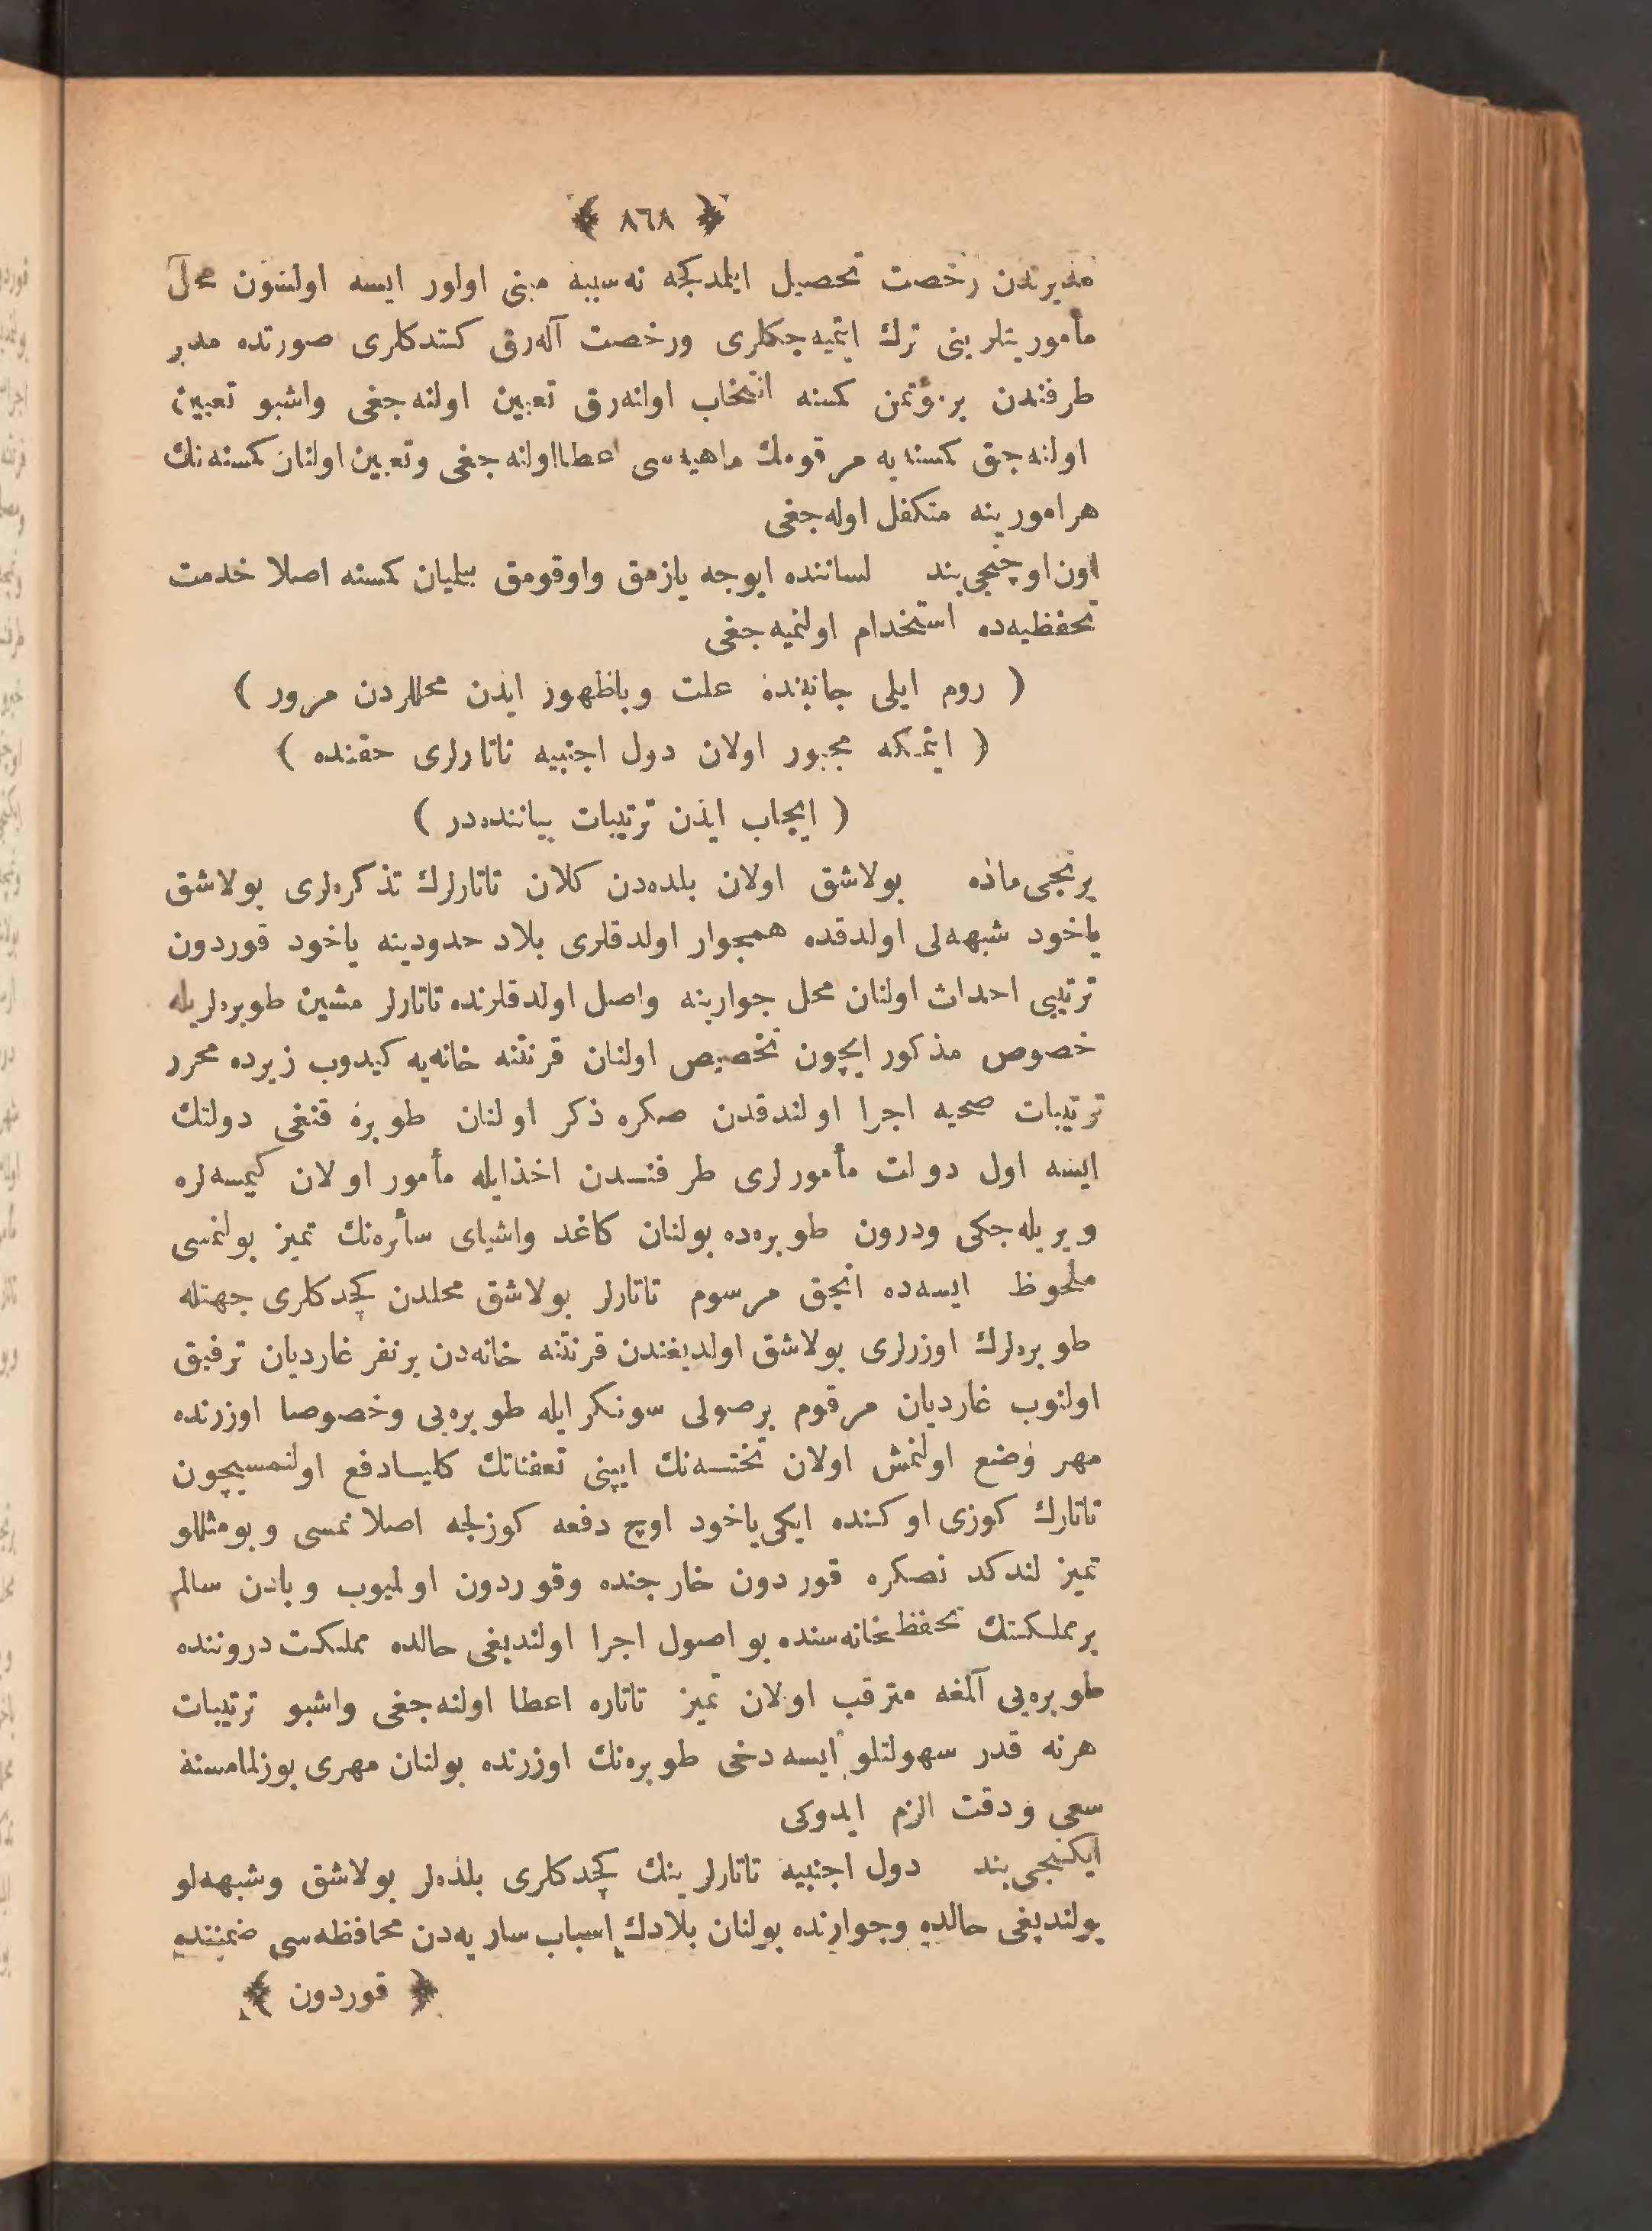 ﴿ ٨٦٨ ﴾
مديرندن رخصت تحصيل ايلمدكجه نه‌سببه مبنی اولور ايسه اولسون محل
مأموريتلرينی ترك ايتميه‌جكلری ورخصت آله‌رق كتدكلری صورتده مدير
طرفندن برمؤتمن كمسنه انتخاب اولنه‌رق تعيين اولنه‌جغی واشبو تعيين
اولنه‌جق كمسنه‌يه مرقومك ماهيه‌سی اعطا اولنه‌جغی وتعيين اولنان كمسنه‌نك
هرامورينه متكفل اوله‌جغی
اون‌اوچنجی‌بند لساننده ايوجه يازمق واوقومق بيلميان كمسنه اصلا خدمت
تحفظيه‌ده استخدام اولنميه‌جغی
( روم ايلی جانبنده علت وباظهور ايدن محللردن مرور )
( ايتمكه مجبور اولان دول اجنبيه تاتارلری حقنده )
( ايجاب ايدن ترتيبات بياننده‌در )
برنجی‌ماده بولاشق اولان بلده‌دن كلان تاتارلرك تذكره‌لری بولاشق
ياخود شبهه‌لی اولدقده همجوار اولدقلری بلاد حدودينه ياخود قوردون
ترتيبی احداث اولنان محل جوارينه واصل اولدقلرنده تاتارلر مشين طوبره‌لريله
خصوص مذكور ايچون تخصيص اولنان قرنتنه خانه‌يه كيدوب زيرده محرر
ترتيبات صحيه اجرا اولندقدن صكره ذكر اولنان طوبره قنغی دولتك
ايسه اول دولت مأمورلری طرفنـدن اخذايله مأمور اولان كيمسه‌لره
ويريله‌جكی ودرون طوبره‌ده بولنان كاغد واشيای سأره‌نك تميز بولنمسی
ملحوظ ايسه‌ده انجق مرسوم تاتارلر بولاشق محلدن كچدكلری جهتله
طوبره‌لرك اوزرلری بولاشق اولديغندن قرنتنه خانه‌دن برنفر غارديان ترفيق
اولنوب غارديان مرقوم برصولی سونكر ايله طوبره‌يی وخصوصا اوزرنده
مهر وضع اولنمش اولان تختـه‌نك ايپنی تعفناتك كليـا دفع اولنمسيچون
تاتارك كوزی اوكنده ايكی‌ياخود اوچ دفعه كوزلجه اصلاتمسی وبومثللو
تميز لندكد نصكره قوردون خارجنده وقوردون اولميوب وبادن سالم
برمملكتك تحفظخانه‌سنده بواصول اجرا اولنديغی حالده مملكت دروننده
طوبره‌يی آلمغه مترقب اولان تميز تاتاره اعطا اولنه‌جغی واشبو ترتيبات
هرنه قدر سهولتلو ايسه دخی طوبره‌نك اوزرنده بولنان مهری بوزلمامسنه
سعی ودقت الزم ايدوكی
ايكنجی‌بند دول اجنبيه تاتارلرينك كچدكلری بلده‌لر بولاشق وشبهه‌لو
بولنديغی حالده وجوارنده بولنان بلادك اسباب ساريه‌دن محافظه‌سی ضمننده
﴿ قوردون ﴾